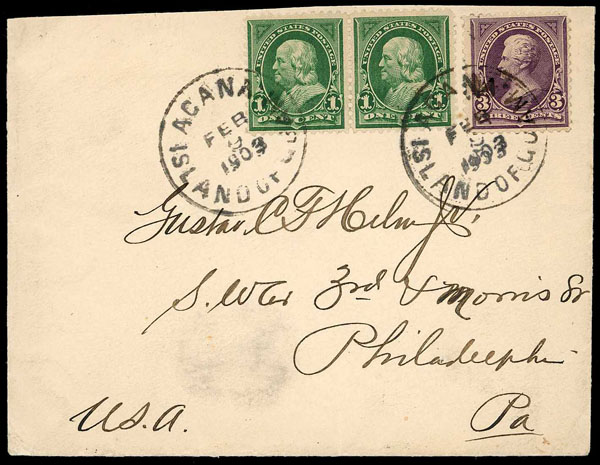 UNITED STATES POSTAGE UNITED STATES POSTAGE UNITED STATES POSTAGE
1 1 1 1 3 3
ONE CENT ONE CENT THREE CENTS
AGANA
FEB
1903
ISLAND OF GUAM
AGANA
FEB
1903
ISLAND OF GUAM
Gustav. C. F. Helm, Jr.
S. W Cor 3rd & Morris St
Philadelphia
U.S.A. Pa